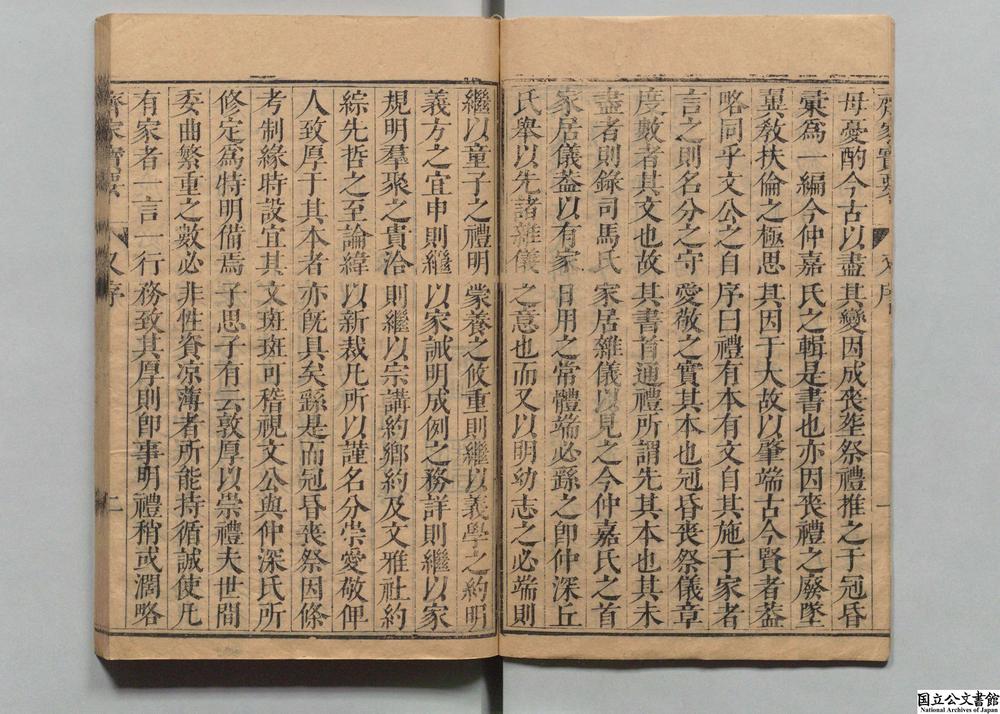 齊家寶要 又序 一
母憂酌今古以盡其變因成喪葬祭禮推之于冠昏
彙爲一編今仲嘉氏之輯是書也亦因喪禮之廢墜
冀敎扶倫之極思其因于大故以肇端古今賢者葢
略同乎文公之自序曰禮有本有文自其施于家者
言之則名分之守愛敬之實其本也冠昏喪祭儀章
度數者其文也故其書首通禮所謂先其本也其未
盡者則錄司馬氏家居雜儀以見之今仲嘉氏之首
家居儀葢以有家日用之常體端必繇之卽仲深丘
氏舉以先諸雜儀之意也而又以明幼志之必端則
繼以童子之禮明蒙養之攸重則繼以義學之約明
義方之宜申則繼以家誡明成例之務詳則繼以家
規明羣聚之貴洽則繼以宗講約鄉約及文雅社約
綜先哲之至論緯以新裁凡所以謹名分崇愛敬俾
人致厚于其本者亦旣具矣繇是而冠昏喪祭因條
考制緣時設宜其文斑斑可稽視文公與仲深氏所
修定爲特明備焉子思子有云敦厚以崇禮夫世間
委曲繁重之數必非性資凉薄者所能持循誠使凡
有家者一言一行務致其厚則卽事明禮稍或濶略
齊家寶要 又序 二
国立公文書館
National Archives of Japan